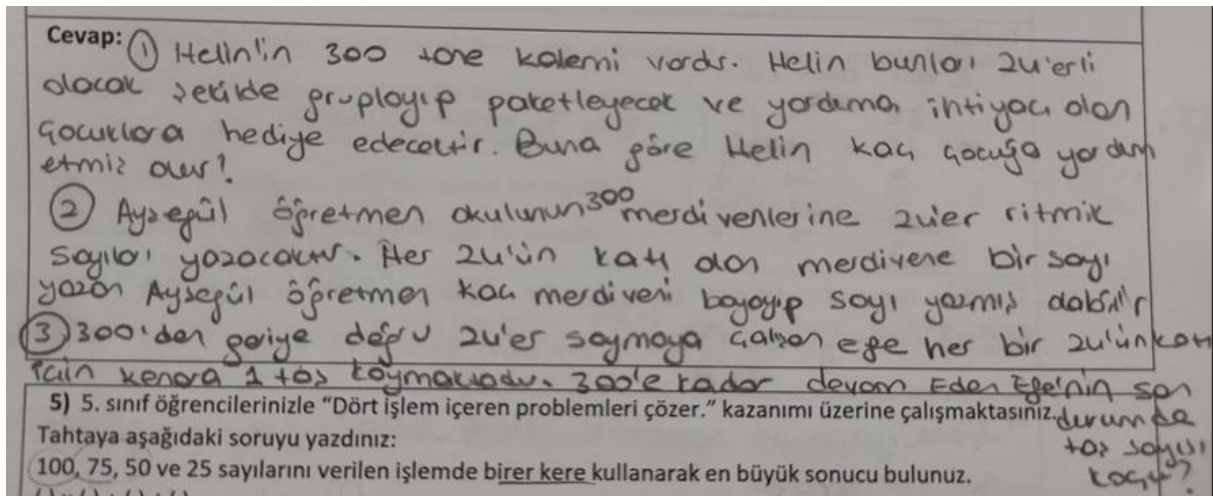 Cevap: ① Helin'in 300 tane kalemi vardır. Helin bunları 24'erli
olacak şekilde gruplayıp paketleyecek ve yardıma ihtiyacı olan
çocuklara hediye edecektir. Buna göre Helin kaç çocuğa yardım
etmiş olur?
② Ayşegül öğretmen okulunun 300 merdivenlerine 24'er ritmik
sayıları yazacaktır. Her 24'ün katı olan merdivene bir sayı
yazan Ayşegül öğretmen kaç merdiveni boyayıp sayı yazmış olabilir
③ 300'den geriye doğru 24'er saymaya çalışan efe her bir 24'ün katı
için kenara 1 taş koymaktadır. 300'e kadar devam Eden Efe'nin son
durumda
taş sayısı
kaçtır?
5) 5. sınıf öğrencilerinizle “Dört işlem içeren problemleri çözer.” kazanımı üzerine çalışmaktasınız.
Tahtaya aşağıdaki soruyu yazdınız:
100, 75, 50 ve 25 sayılarını verilen işlemde birer kere kullanarak en büyük sonucu bulunuz.